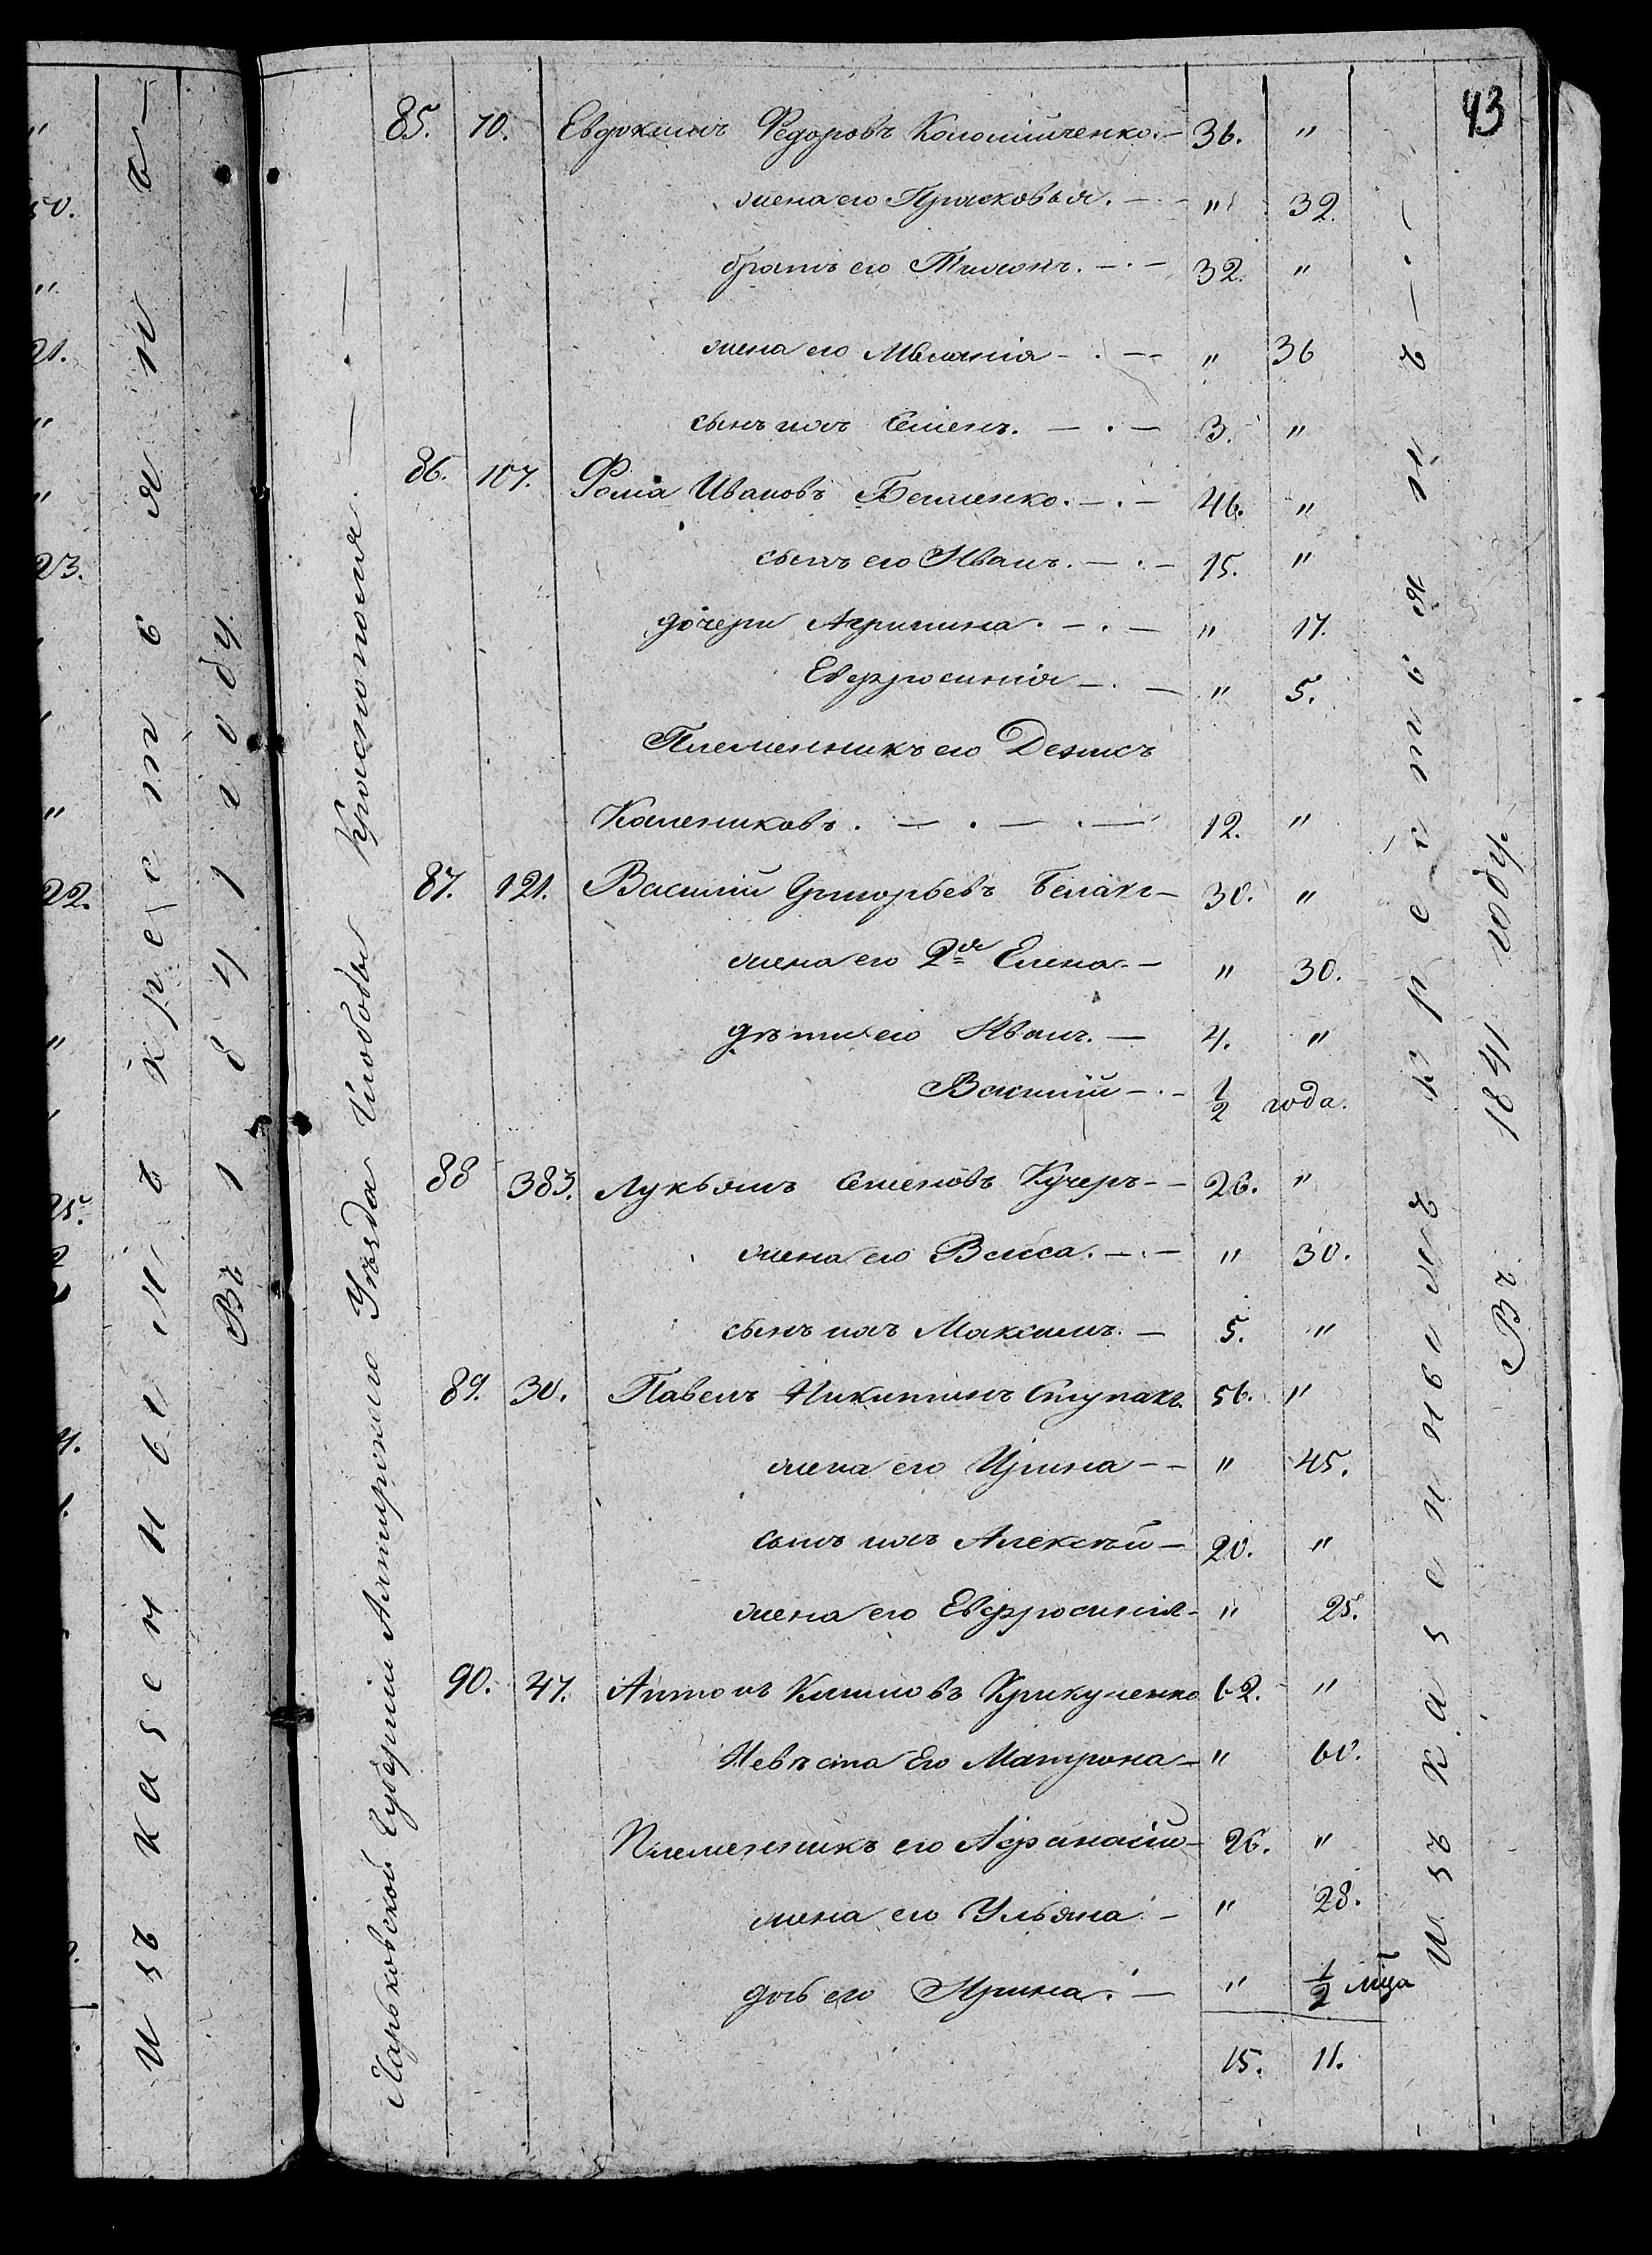 43
Харьковской Губерніи Ахтырскаго Уѣзда Слободы Краснополья
85. 70. Евдокимъ Федоровъ Коломійченко. — 36. "
жена его Прасковья. — " 32.
братъ его Тихонъ. — . — 32. "
жена его Меланія — . — " 36
сынъ ихъ Семенъ. — . — 3. "
86. 107. Фома Ивановъ — . — 46. "
сынъ его Иванъ. — . — 15. "
дочери Агрипина. — . — " 17.
Евфросинія — . — " 5.
Племенникъ его Денисъ
Калениковъ. — . — . — 12. "
87. 121. Василій Григорьевъ Белахъ — 30. "
жена его 2я Елена. — " 30.
дѣти его Иванъ. — 4. "
Василій — . — 1/2 года.
88 383. Лукьянъ Семеновъ Кучеръ — — 26. "
жена его Васса. — . — " 30.
сынъ ихъ Максимъ. — 5. "
89. 30. Павелъ Никитинъ Ступакъ. 56. "
жена его Ирина — — " 45.
сынъ ихъ Алексѣй — 20. "
жена его Евфросинія — " 25.
90. 47. Антонъ Климовъ Крикуненко 62. "
Невѣста Его Матрона — " 60.
Племенникъ его Афанасій — 26. "
жена его Ульяна — " 28.
дочь его Ирина. — " 1/2 мца
15. 11.
Изъ казенныхъ крестьянъ — . —
Въ 1841 году.
Изъ казенныхъ крестьянъ —
Въ 1841 году.
50.
21.
23.
22.
25.